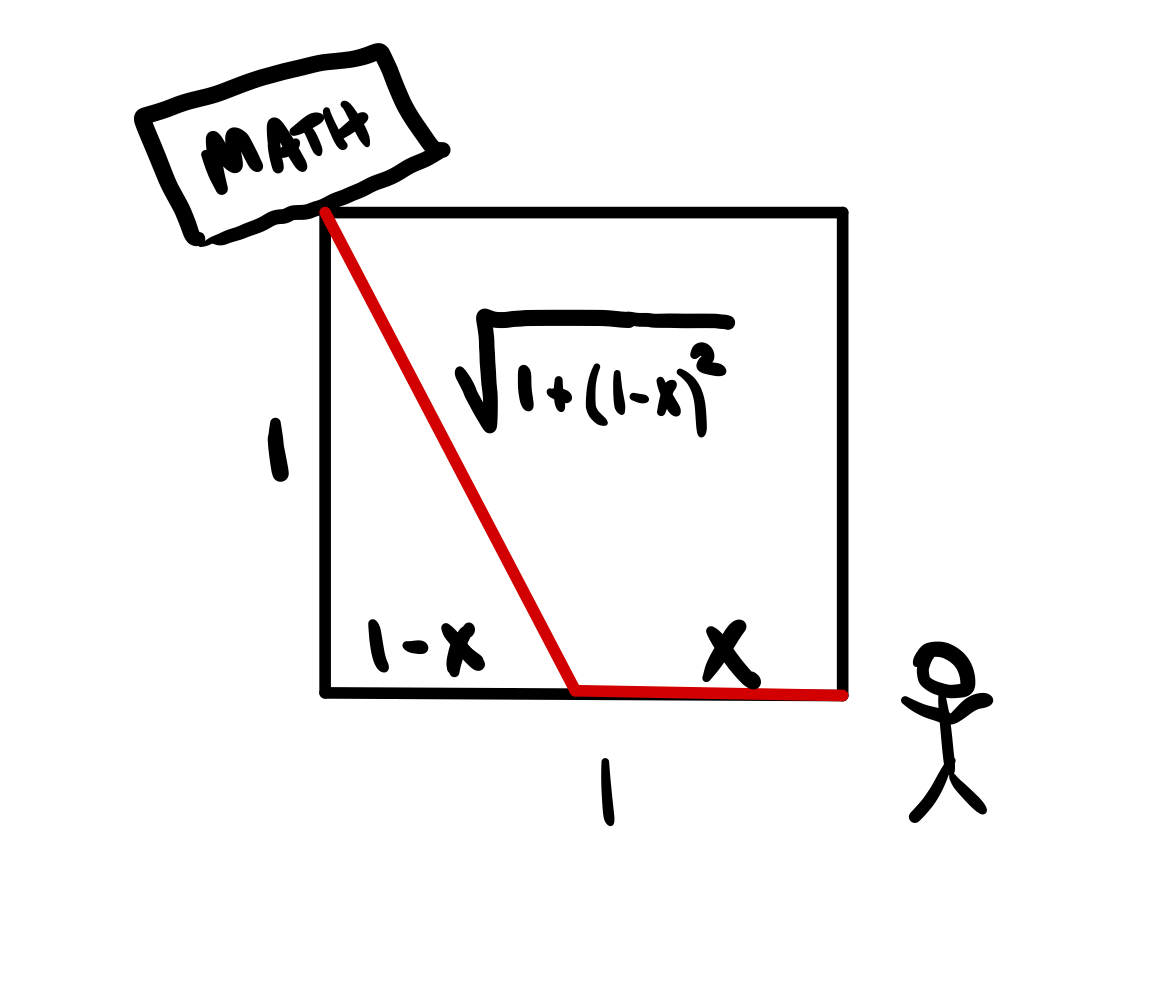 MATH
√1+(1-x)²
1
1-x
x
1